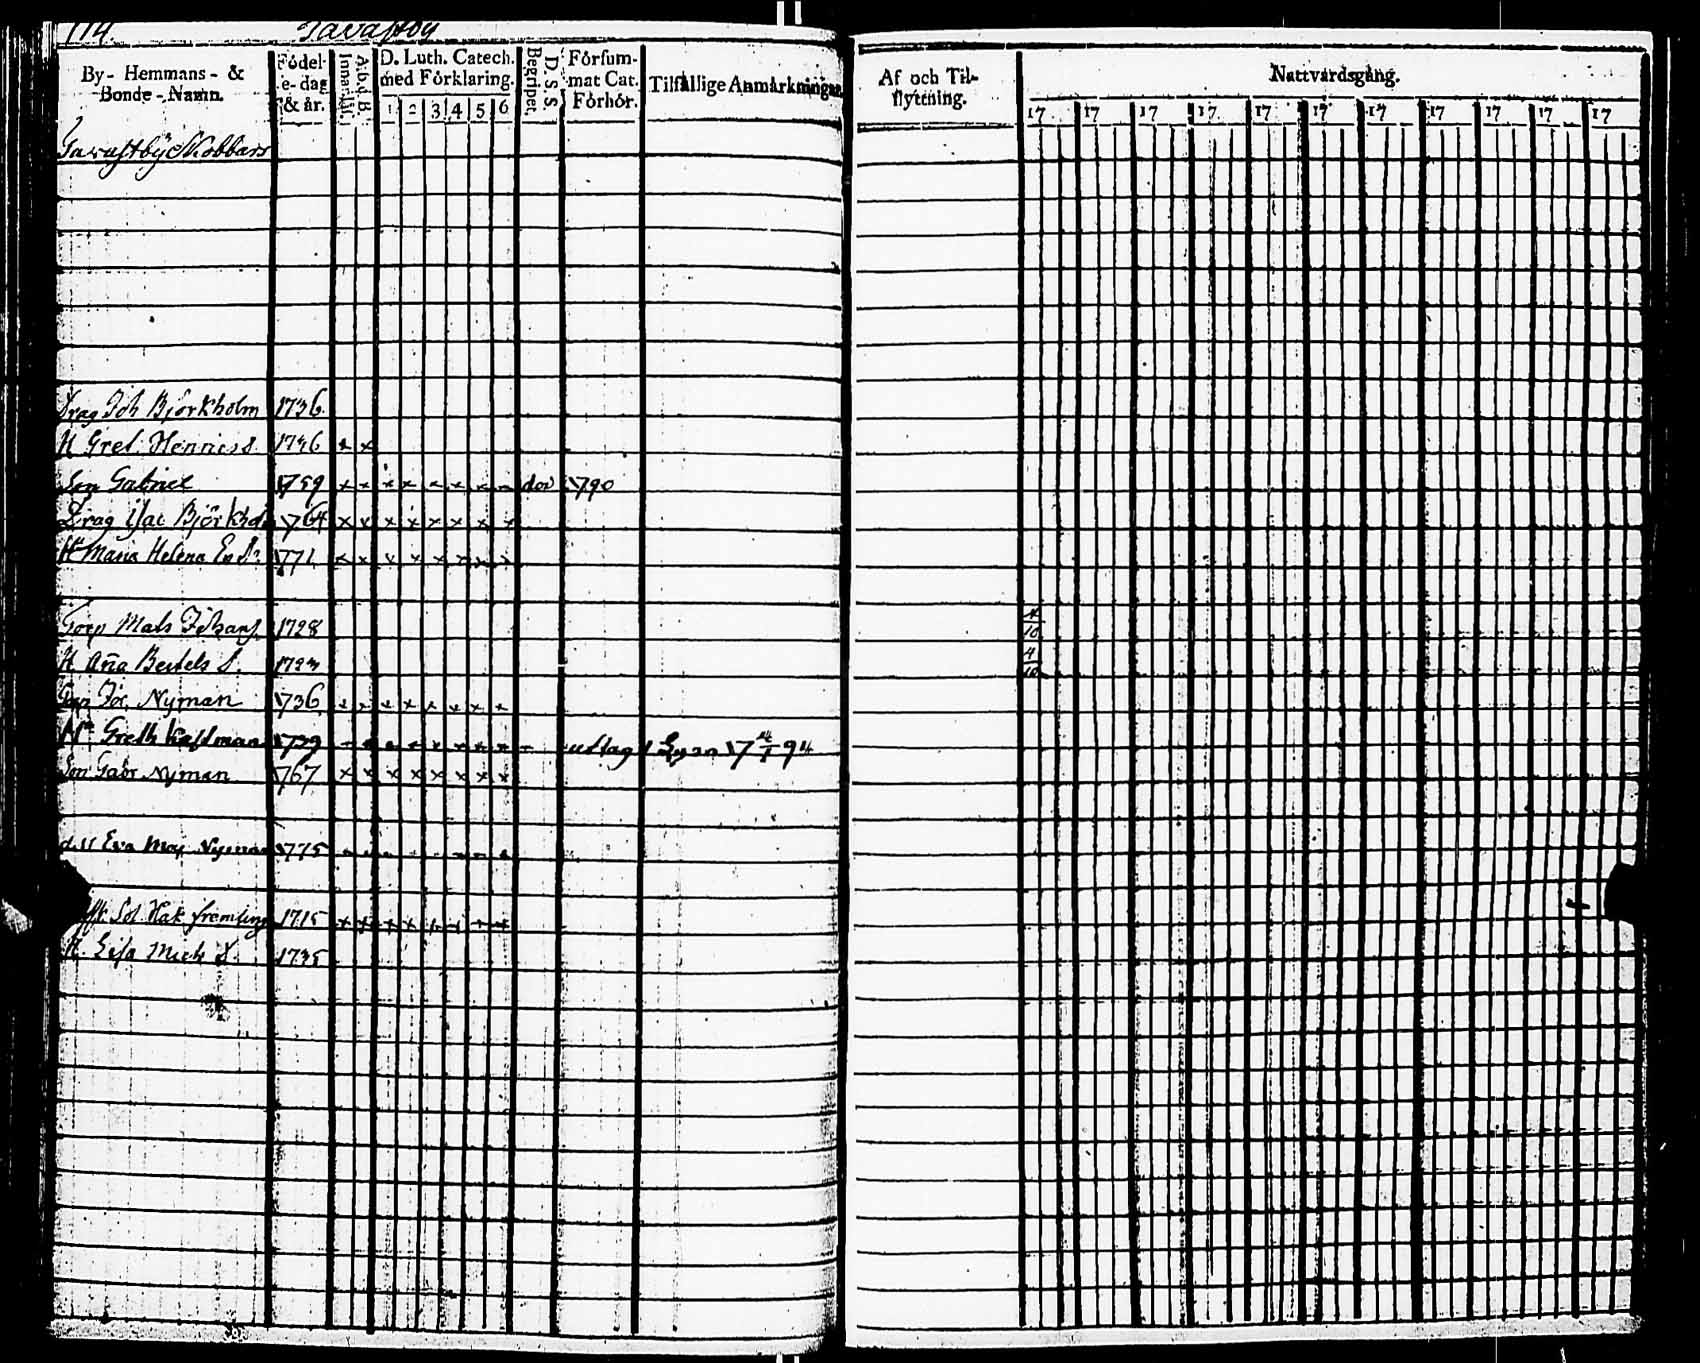 114. Tavastby
By- Hemmans- & Bonde-Namn.
Fódel-e-dag & år.
Innanl.
A.b.d.B.
D. Luth. Catech. med Fórklaring.
1 2 3 4 5 6
Begriper.
D. s. s.
Fórsum-mat Cat. Fórhór.
Tilfällige Anmärkningar
Tavastby Nobbars
Drag Joh Björkholm 1736.
H Gret. Henricsd. 1746 x x
Son Gabriel 1759 x x x x x x x död 1790
Drag Isac Björkhol 1764 x x x x x x x x
H Maria Helena 1771 x x x x x x x x
Torp Mats Johans. 1728
H Aña Bertels d.
Nyman 1736 x x x x x x x x
H Greth Kastman 1739 uttag 1794
Son Gabr. Nyman 1767 x x x x x x x x
Eva Maj Nyman 1775
Sol. Hak framling 1715
H. Lisa Mich d. 1735
Af och Til-flyttning.
Nattvardsgång.
17 17 17 17 17 17 17 17 17 17 17
4/10
4/10